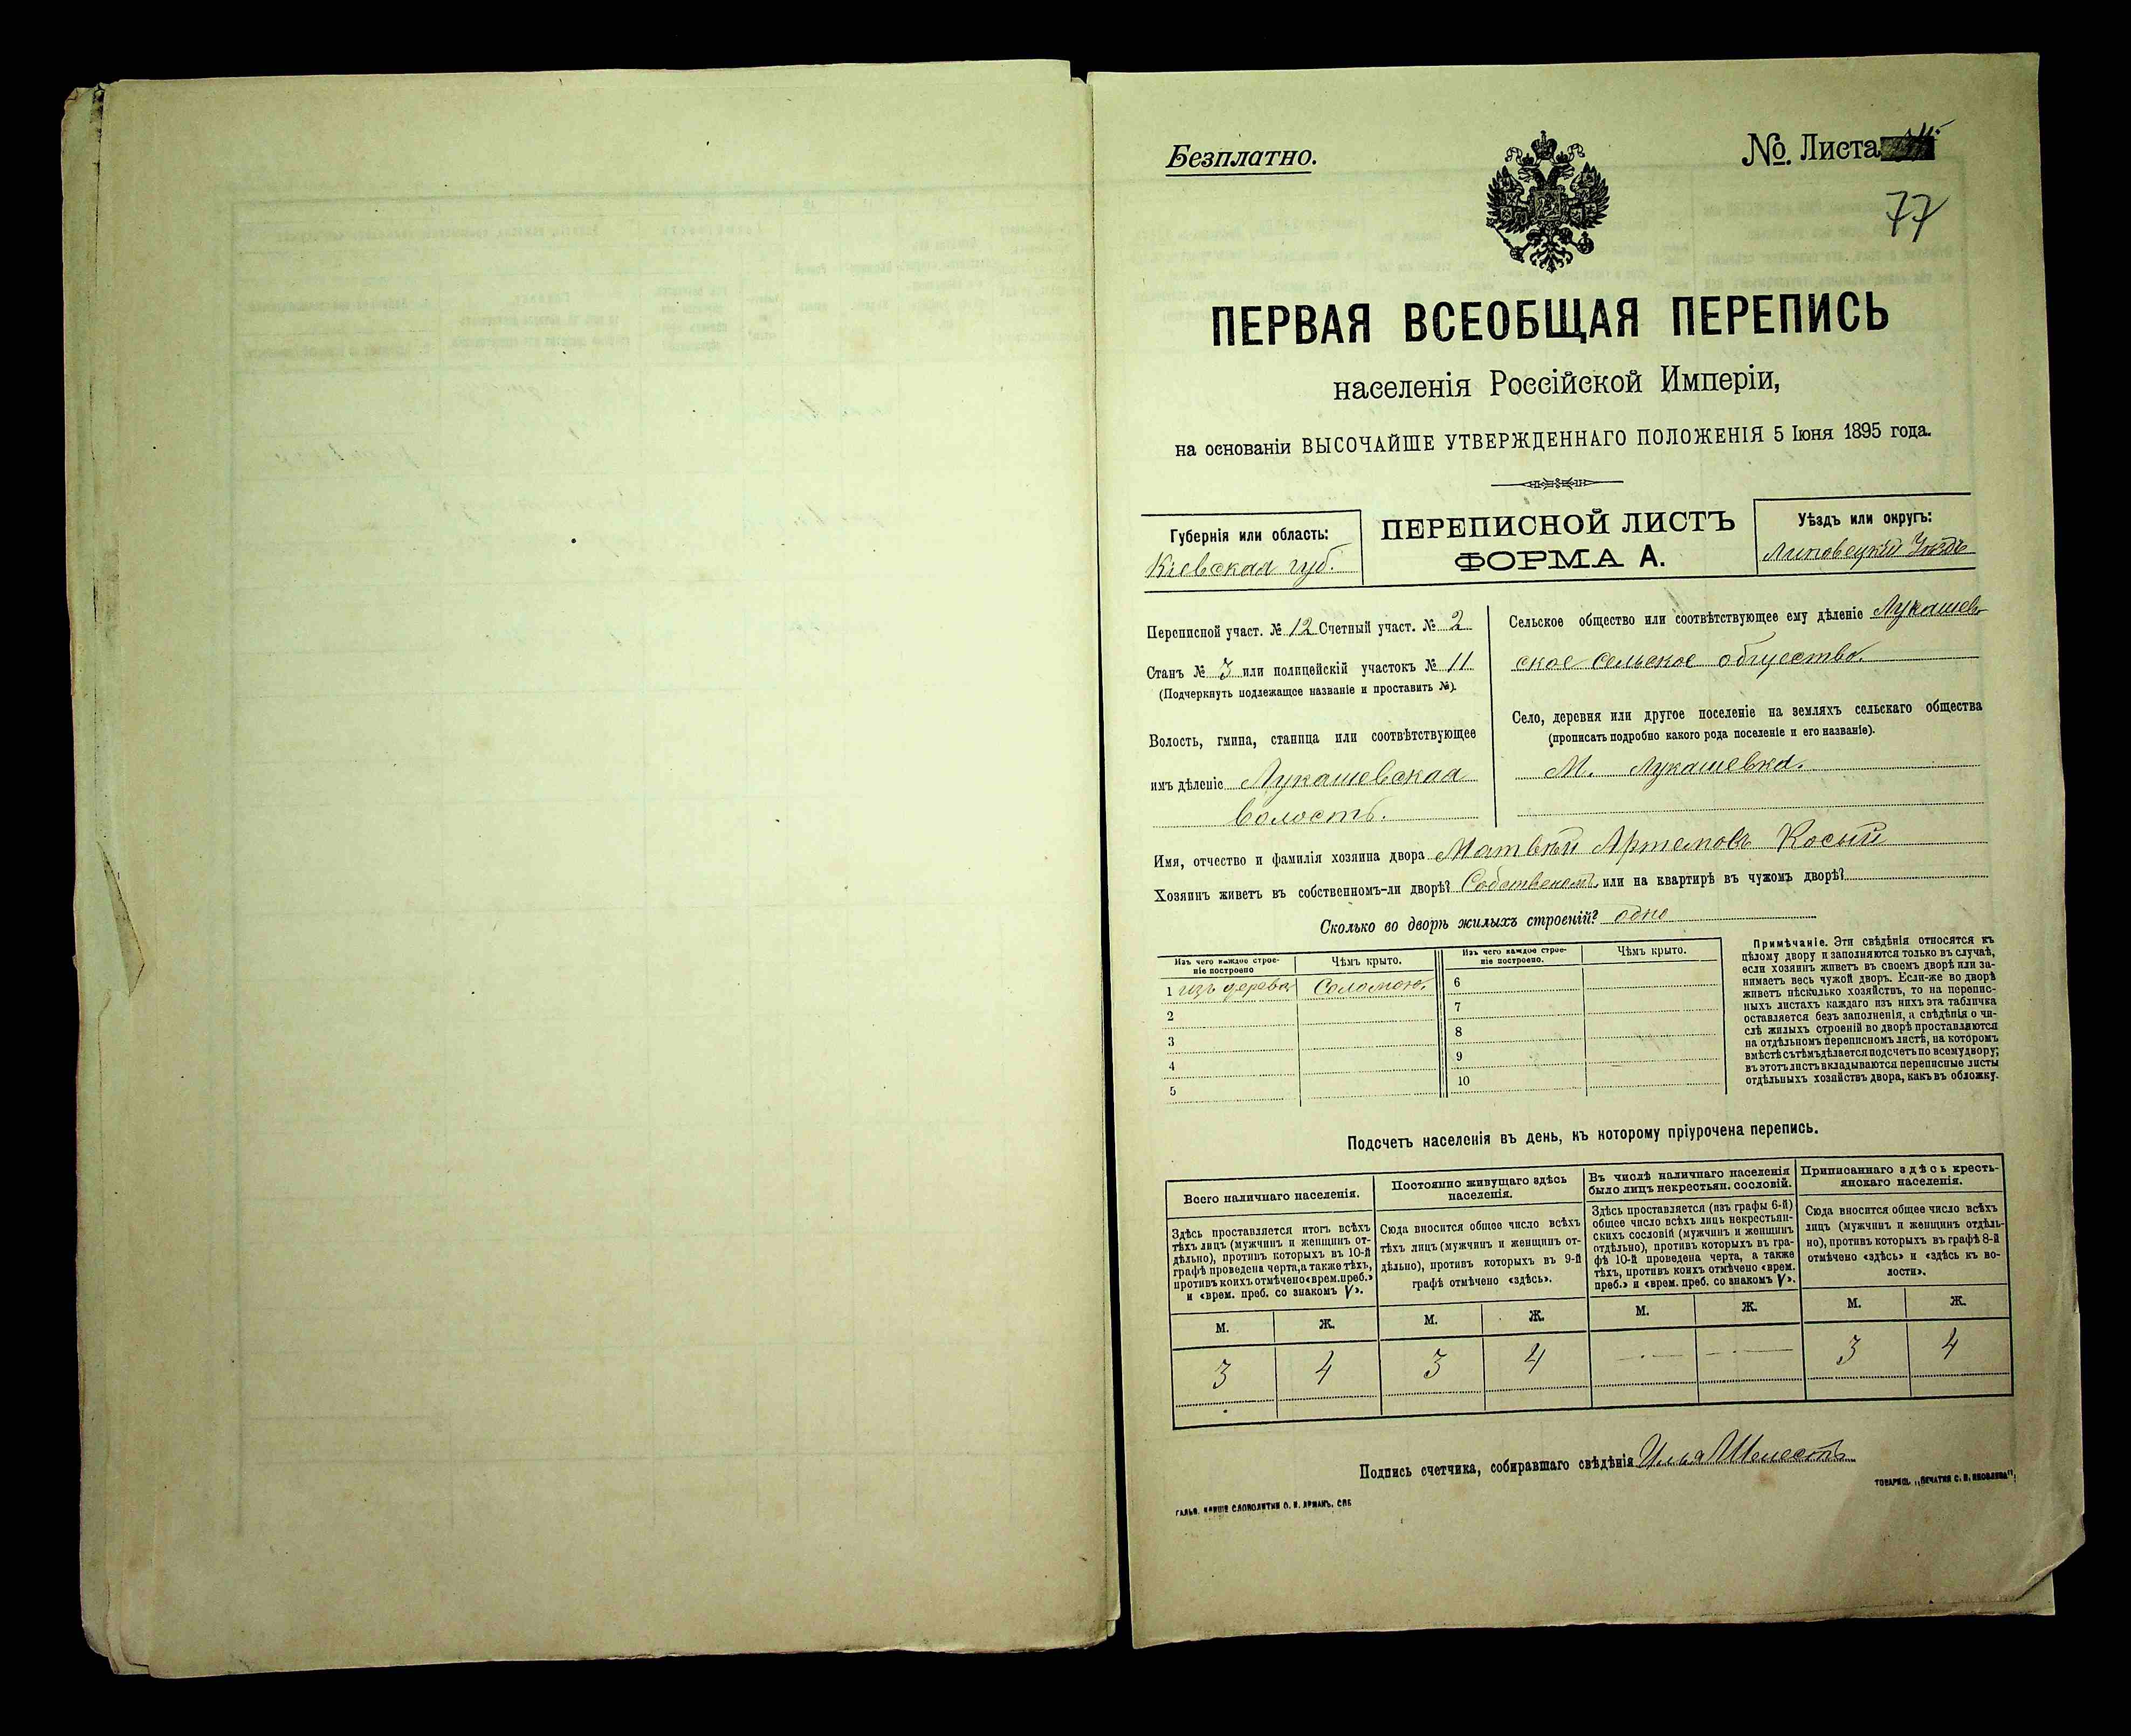 Безплатно.
№. Листа
77
ПЕРВАЯ ВСЕОБЩАЯ ПЕРЕПИСЬ
населенія Россійской Имперіи,
на основаніи ВЫСОЧАЙШЕ УТВЕРЖДЕННАГО ПОЛОЖЕНІЯ 5 Іюня 1895 года.
Губернія или область:
Кіевская губ.
ПЕРЕПИСНОЙ ЛИСТЪ
ФОРМА А.
Уѣздъ или округъ:
Липовецкій Уѣздъ
Переписной участ. № 12 Счетный участ. № 2
Станъ № 3 или полицейскій участокъ № 11
(Подчеркнуть подлежащое названіе и проставить №).
Волость, гмина, станица или соотвѣтствующее
имъ дѣленіе Лукашевская
волость.
Сельское общество или соотвѣтствующее ему дѣленіе Лукашев-
ское сельское общество.
Село, деревня или другое поселеніе на земляхъ сельскаго общества
(прописать подробно какого рода поселеніе и его названіе).
М. Лукашевка.
Имя, отчество и фамилія хозяина двора Матвѣй Артемовъ Косый
Хозяинъ живетъ въ собственномъ-ли дворѣ? Собственомъ или на квартирѣ въ чужомъ дворѣ?
Сколько во дворѣ жилыхъ строеній? одно
Изъ чего каждое строе-
ніе построено
Чѣмъ крыто.
Изъ чего каждое строе-
ніе построено.
Чѣмъ крыто.
1 изъ дерева Соломою. 6
2 7
3 8
4 9
5 10
Примѣчаніе. Эти свѣдѣнія относятся къ
цѣлому двору и заполняются только въ случаѣ,
если хозяинъ живетъ въ своемъ дворѣ или за-
нимаетъ весь чужой дворъ. Если-же во дворѣ
живетъ нѣсколько хозяйствъ, то на перепис-
ныхъ листахъ каждаго изъ нихъ эта табличка
оставляется безъ заполненія, а свѣдѣнія о чи-
слѣ жилыхъ строеній во дворѣ проставляются
на отдѣльномъ переписномъ листѣ, на которомъ
вмѣстѣ съ тѣмъ дѣлается подсчетъ по всему двору;
въ этотъ листъ вкладываются переписные листы
отдѣльныхъ хозяйствъ двора, какъ въ обложку.
Подсчетъ населенія въ день, къ которому пріурочена перепись.
Всего наличнаго населенія.
Здѣсь проставляется итогъ всѣхъ
тѣхъ лицъ (мужчинъ и женщинъ от-
дѣльно), противъ которыхъ въ 10-й
графѣ проведена черта, а также тѣхъ,
противъ коихъ отмѣчено «врем. преб.»
и «врем. преб. со знакомъ V».
Постоянно живущаго здѣсь
населенія.
Сюда вносится общее число всѣхъ
тѣхъ лицъ (мужчинъ и женщинъ от-
дѣльно), противъ которыхъ въ 9-й
графѣ отмѣчено «здѣсь».
Въ числѣ наличнаго населенія
было лицъ некрестьян. сословій.
Здѣсь проставляется (изъ графы 6-й)
общее число всѣхъ лицъ некрестьян-
скихъ сословій (мужчинъ и женщинъ
отдѣльно), противъ которыхъ въ гра-
фѣ 10-й проведена черта, а также
тѣхъ, противъ коихъ отмѣчено «врем.
преб.» и «врем. преб. со знакомъ V».
Приписаннаго здѣсь кресть-
янскаго населенія.
Сюда вносится общее число всѣхъ
лицъ (мужчинъ и женщинъ отдѣль-
но), противъ которыхъ въ графѣ 8-й
отмѣчено «здѣсь» и «здѣсь къ во-
лости».
М. Ж. М. Ж. М. Ж. М. Ж.
3 4 3 4 — — 3 4
Подпись счетчика, собиравшаго свѣдѣнія Илья Шелестъ
ГАЛЬВ. КЛИШЕ СЛОВОЛИТНИ О. И. ЛЕМАНЪ, СПБ
ТОВАРИЩ. „ПЕЧАТНЯ С. П. ЯКОВЛЕВА“.